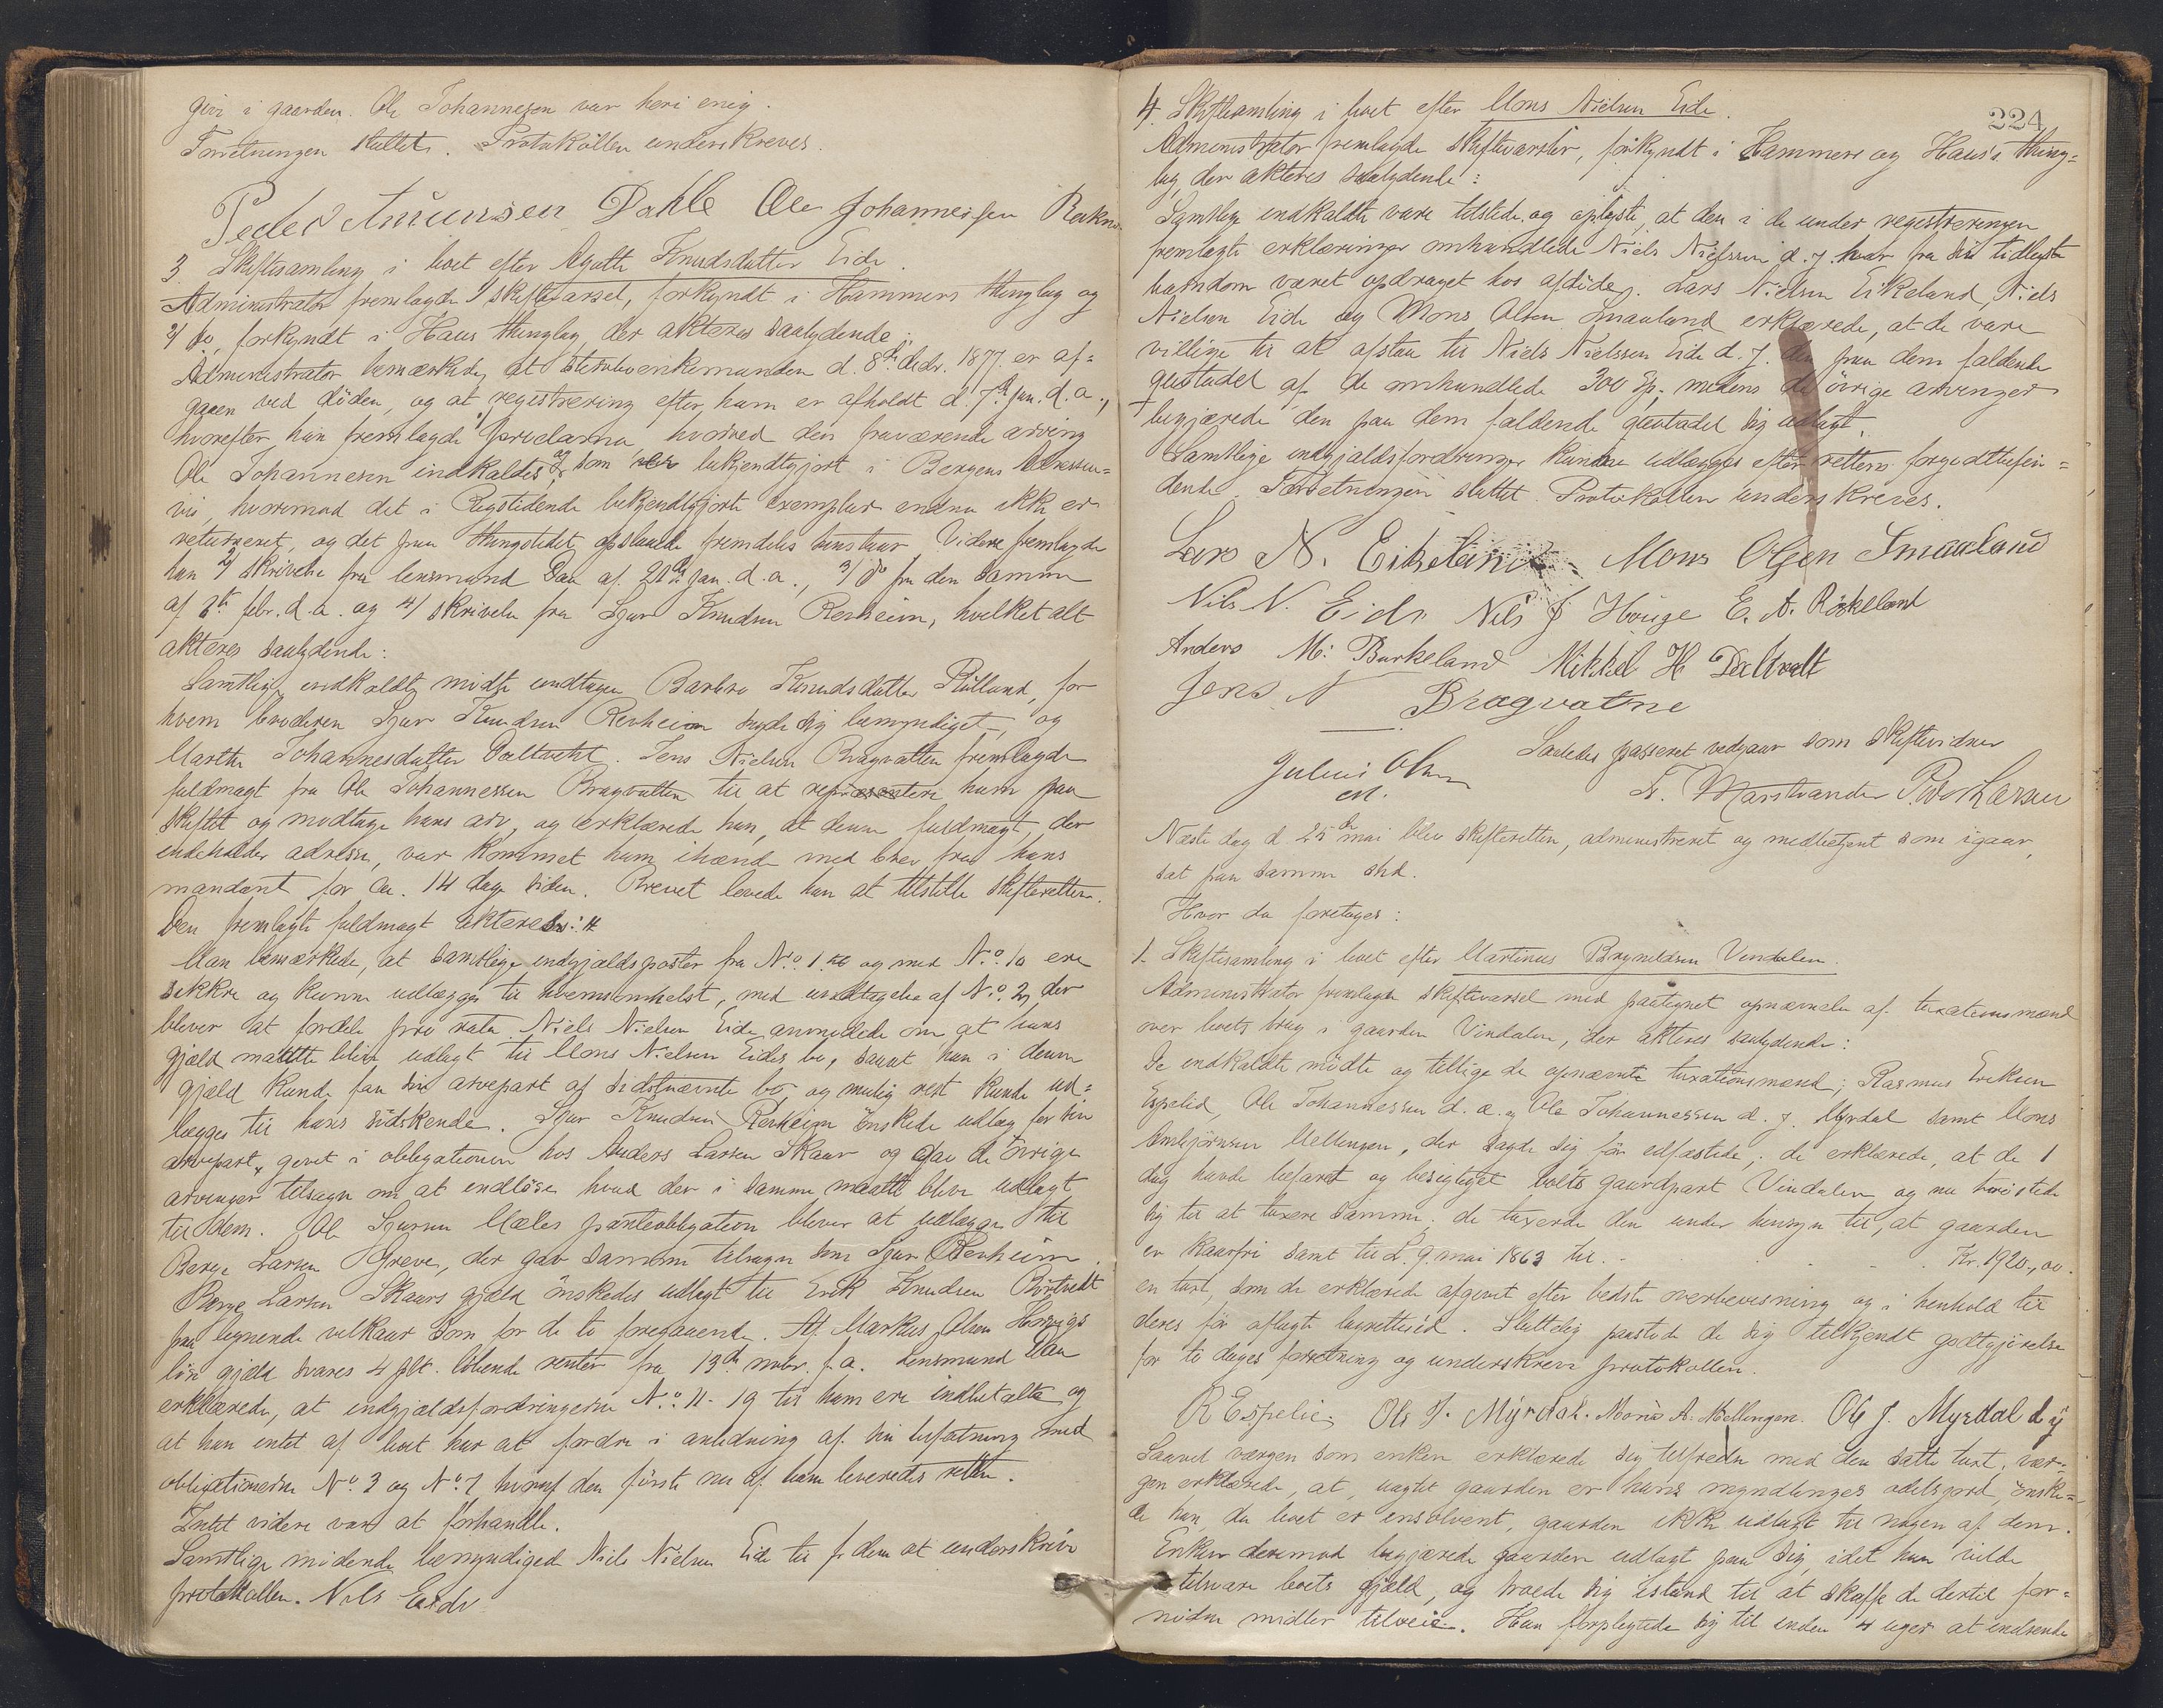 givr i gaarden. Ole Johannesen var heri enig.
Forretningen sluttet. Protokollen underskreves.
Peder Amunsen Dahle Ole Johannessen Raknæs
3 Skiftesamling i boet efter Agathe Knudsdatter Eide.
Administrator fremlagde 1 skiftevarsel, forkyndt i Hammers thinglag og
2/ do, forkyndt i Haus thinglag, der akteres saalydende:
Administrator bemærkede, at stervboenkemanden d. 8de decbr. 1877 er af=
gaaen ved döden, og at registrering efter ham er afholdt d. 7de jan. d. a.,
hvorefter han fremlagde proclama hvorved den fraværende arving
Ole Johannesen indkaldes, og som er bekjendtgjort i Bergens Adresseavis=
vis, hvorimod det i Rigstidende bekjendtgjorte exemplar endnu ikke er
returneret, og det paa thingstedet opslaaede fremdeles henstaar. Videre fremlagde
han 2/ skrivelse fra lensmand Daae af 21de jan. d. a., 3/ do fra den samme
af 6te febr. d. a. og 4/ skrivelse fra Sjur Knudsen Revheim, hvilket alt
akteres saalydende:
Samtlige indkaldte mödte undtagen Barbro Knudsdatter Rülland, for
hvem broderen Sjur Knudsen Revheim sagde sig bemyndiget, og
Marthe Johannesdatter Daltveht. Jens Nielsen Bragvatten fremlagde
fuldmagt fra Ole Johannessen Bragvatten til at repræsentere ham paa
skiftet og modtage hans arv, og erklærede han, at denne fuldmagt, der
indeholder adresse, var kommet ham ihænde med brev fra hans
mandant for ca. 14 dage siden. Brevet lovede han at tilstille skifteretten.
Den fremlagte fuldmagt akteres:
Man bemærkede, at samtlige indgjældsposter fra No. 1 til og med No. 10 ere
sikkre og kunne udlægges til hvemsomhelst, med undtagelse af No. 2, der
bliver at fordele pro rata. Niels Nielsen Eide anmodede om at hans
gjæld maatte blive udlagt til Mons Nielsen Eides bo, saaat han i denne
gjæld kunde faa sin arvepart af sidstnævnte bo, og mulig rest kunde ud=
lægges til hans södskende. Sjur Knudsen Revheim önskede udlæg for sin
arvepart givet i obligationen hos Anders Larsen Skaar og gav de övrige
arvinger tilsagn om at indlöse hvad der i samme maatte blive udlagt
til dem. Ole Sjursen Mæles panteobligation bliver at udlægge til
Børge Larsen Greve, der gav samme tilsagn som Sjur Revheim.
Børge Larsen Skaars gjæld önskedes udlagt til Erik Knudsen Börtvedt
paa lignende velkaar som for de to foregaaende. Af Markus Olsen Hopigs
löse gjæld svares 4 pCt. löbende renter fra 13de novbr. f. a. Lensmand Daae
erklærede, at indgjældsfordringerne No. 11-19 til ham ere indbetalte og
at han intet af boet har at fordre i anledning af sin befatning med
obligationerne No. 3 og No. 7 hvoraf den förste nu af ham leveredes retten.
Intet videre var at forhandle.
Samtlige mödende bemyndiged Niels Nielsen Eide til f. dem at underskrive
protokollen. Nils Eide
224
4. Skiftesamling i boet efter Mons Nielsen Eide.
Administrator fremlagde skiftevarsler, forkyndt i Hammers og Haus's thing=
lag, der akteres saalydende:
Samtlige indkaldte vare tilstede, og oplyste, at den i de under registreringen
fremlagte erklæringer omhandlede Niels Nielssen d. y. har fra sin tidligste
barndom været opdraget hos afdöde. Lars Nielsen Eikeland, Niels
Nielsen Eide og Mons Olsen Smaaland erklærede, at de vare
villige til at afstaa til Niels Nielssen Eide d. y. den paa dem faldende
qvotadel af de omhandlede 300 Sp., medens de övrige arvinger
begjærede den paa dem faldende qvotadel sig udlagt.
Samtlige indgjældsfordringer kunne udlægges efter rettens forgodtbefin=
dende. Forretningen sluttet. Protokollen underskreves.
Lars N. Eikeland Mons Olsen Smaaland
Nils N. Eide Nils J Houge E. A. Röskeland
Anders M: Burkeland Mikkel H Daltvedt
Jens N Bragvatne
Saaledes passeret vedgaar som skiftevidner
Julius Olsen F. Marstrander Peder Larsen
cst.
Næste dag d. 25de mai blev skifteretten, administreret og medbetjent som igaar,
sat paa samme sted.
Hvor da foretoges:
1. Skiftesamling i boet efter Martinus Brynildsen Vindalen.
Administrator fremlagde skiftevarsel med paategnet opnævnelse af taxationsmænd
over boets brug i gaarden Vindalen, der akteres saalydende:
De indkaldte mödte og tillige de opnævnte taxationsmænd; Rasmus Eriksen
Espelid, Ole Johannessen d. æ. og Ole Johannessen d. y. Myrdal samt Mons
Ambjörnsen Mellingen, der sagde sig för edfæstede; de erklærede, at de 1
dag havde befaret og besigtiget boets gaardpart Vindalen og nu tröstede
sig til at taxere samme; de taxerede den under hensyn til, at gaarden
er kaarfri samt til L. 9 mai 1863 til . . . . . Kr. 1920,00.
en taxt, som de erklærede afgivet efter bedste overbevisning og i henhold til
deres för aflagte lagretteséd. Sluttelig paastode de sig tilkjendt godtgjörelse
for to dages forretning og underskrev protokollen.
R Espelie Ole J. Myrdal. Mons A. Mellingen. Ole J. Myrdal d y
Saavel værgen som enken erklærede sig tilfreds med den satte taxt, vær=
gen erklærede, at, uagtet gaarden er hans myndlinges odelsgord, önske=
de han, da boet er insolvent, gaarden ikke udlagt til nogen af dem.
Enken derimod begjærede gaarden udlagt paa sig, idet hun vilde
tilsvare boets gjæld, og troede sig istand til at skaffe de dertil for=
nödne midler tilveie. Hun forpligtede sig til inden 4 uger at indsende